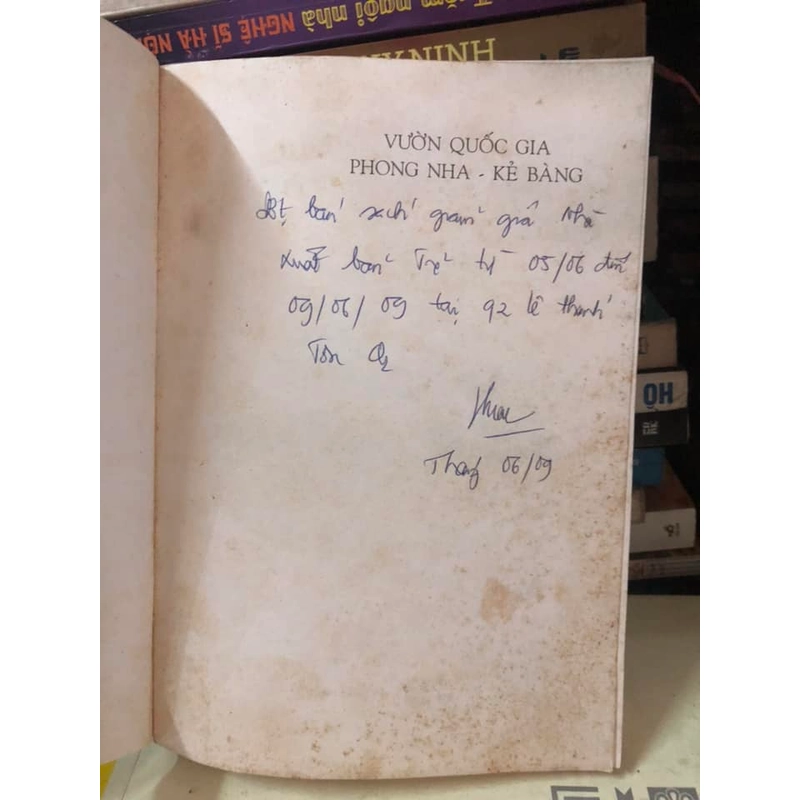 Thăm ngôi nhà NGHỆ SĨ HÀ NỘI
NINH
VƯỜN QUỐC GIA
PHONG NHA - KẺ BÀNG
bán sách giảm giá Nhà
xuất bản Trẻ từ 05/06 đến
09/06/09 tại 92 lê thánh
Tôn Q1
Tháng 06/09
HỘ